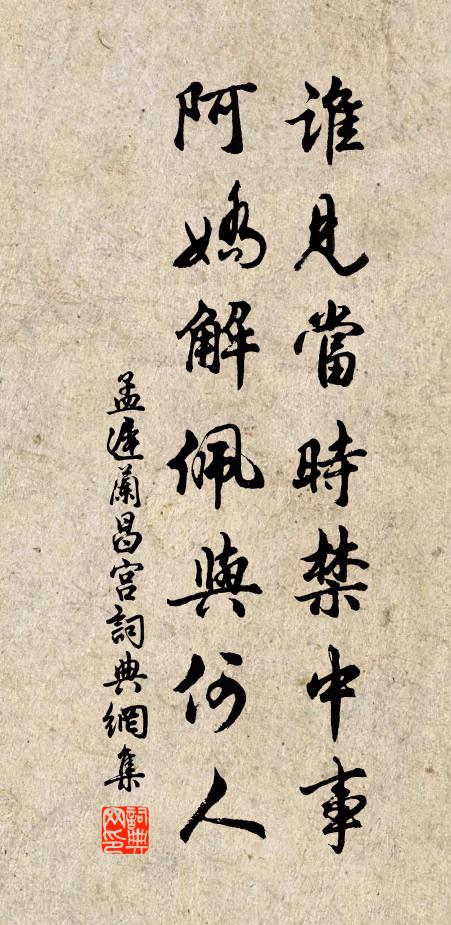 誰見當時禁中事
阿嬌解佩與何人
孟遲蘭昌宮詞典網集
詞典網印